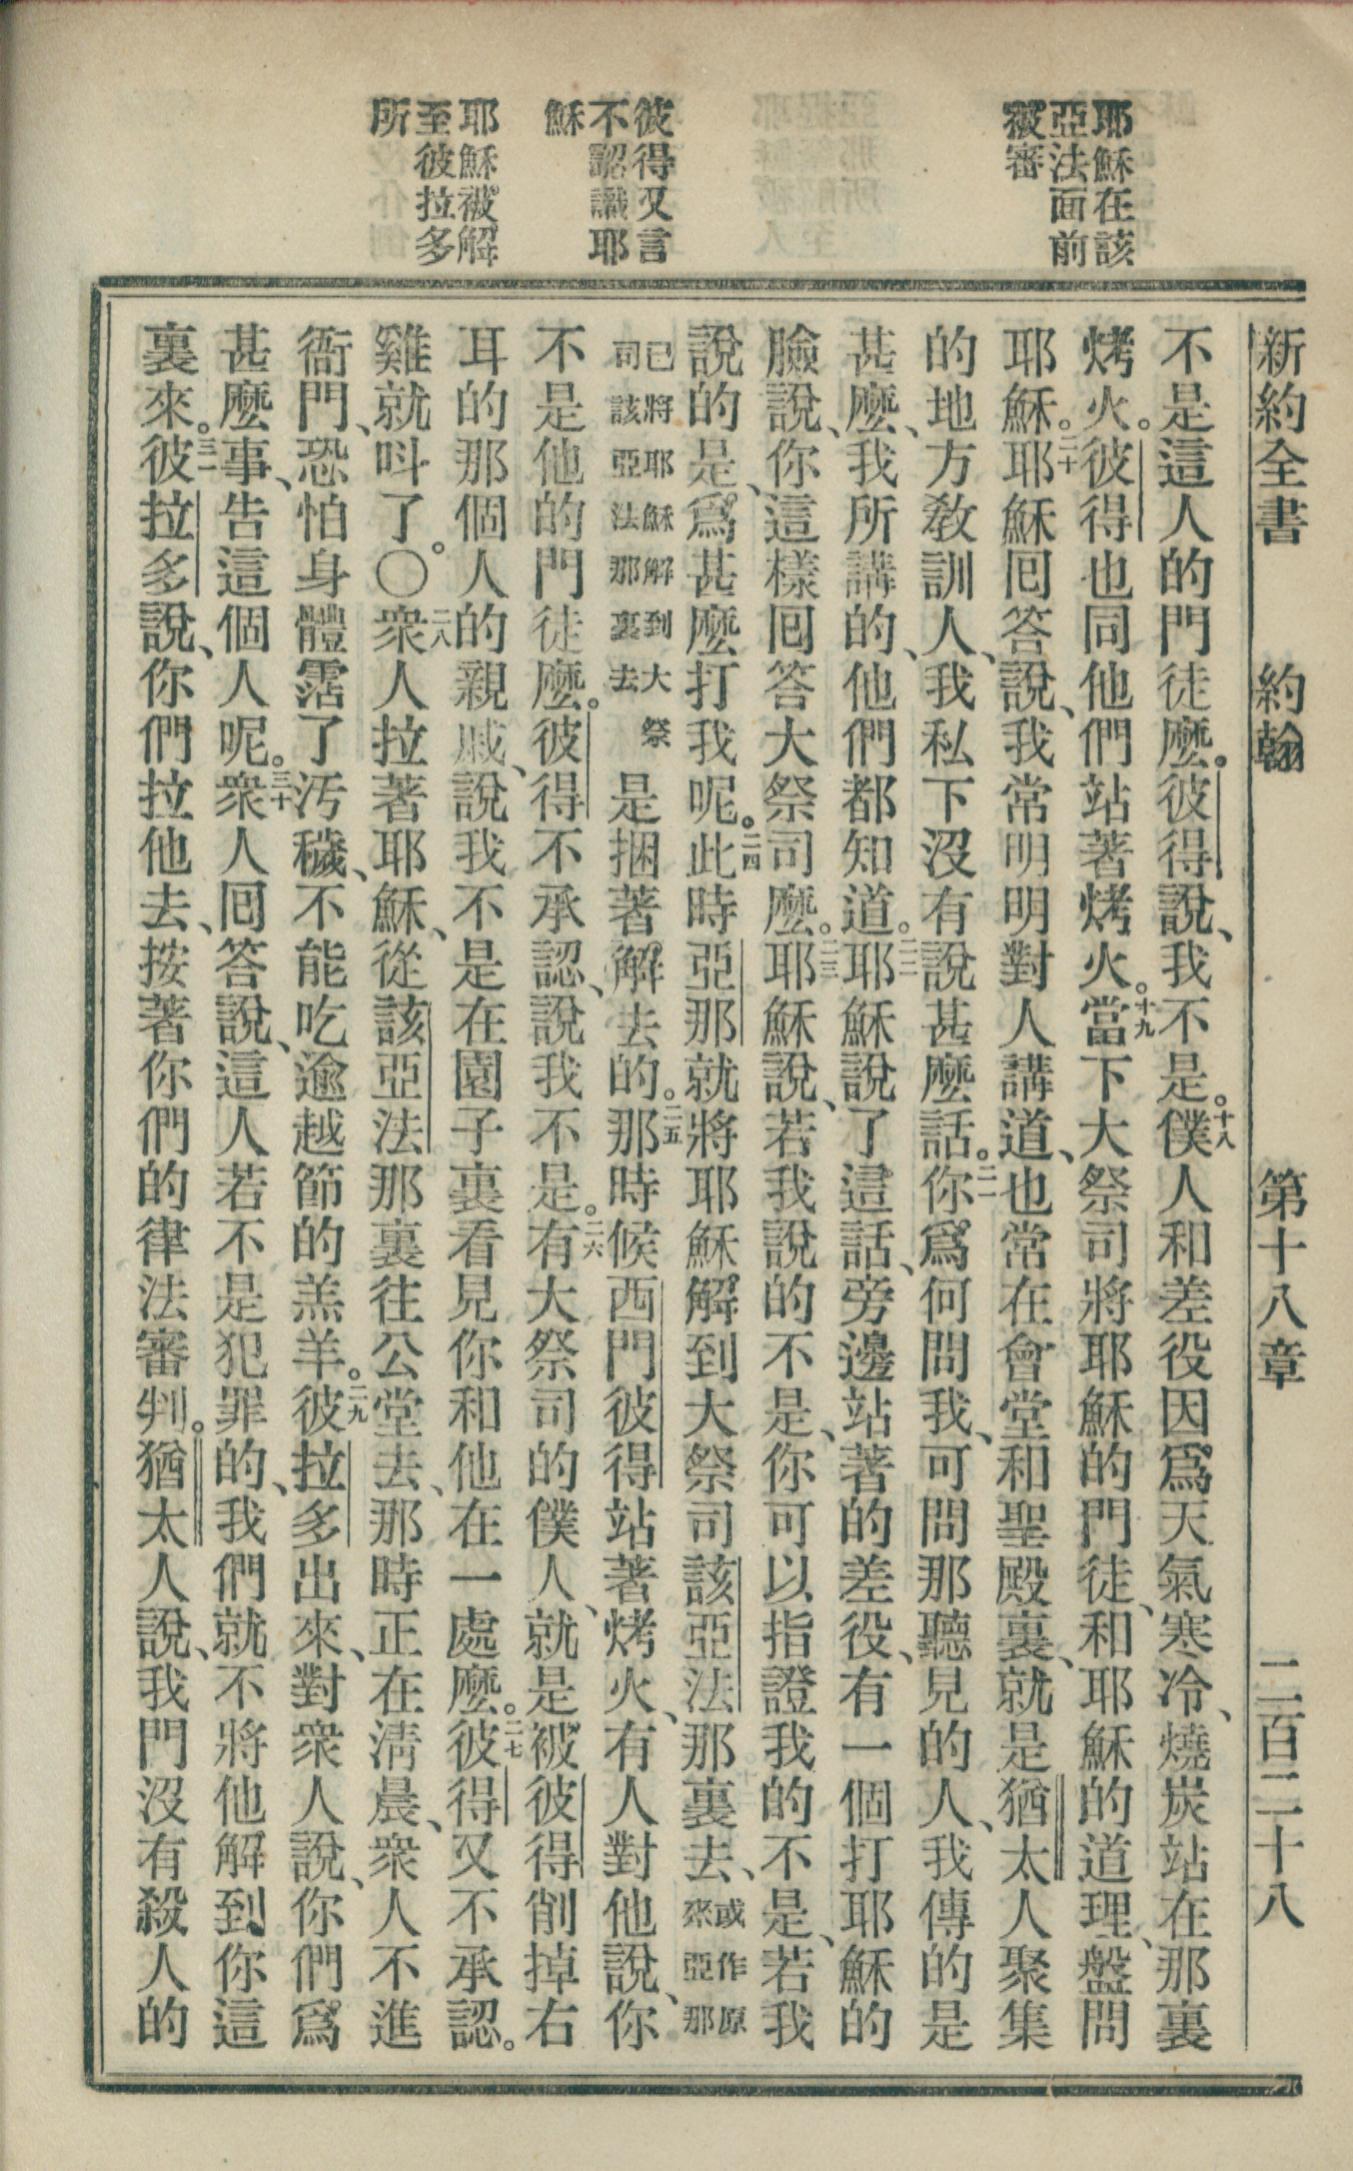 耶穌在該
亞法面前
被審
彼得又言
不認識耶
穌
耶穌被解
至彼拉多
所
新約全書 約翰 第十八章 二百二十八
不是這人的門徒麽。彼得說、我不是。十八僕人和差役因爲天氣寒冷、燒炭站在那裏
烤火。彼得也同他們站著烤火。十九當下大祭司將耶穌的門徒、和耶穌的道理、盤問
耶穌。二十耶穌囘答說、我常明明對人講道、也常在會堂和聖殿裏、就是猶太人聚集
的地方敎訓人、我私下沒有說甚麽話。二一你爲何問我、可問那聽見的人、我傳的是
甚麽、我所講的、他們都知道。二二耶穌說了這話、旁邊站著的差役、有一個打耶穌的
臉說、你這樣囘答大祭司麽。二三耶穌說、若我說的不是、你可以指證我的不是、若我
說的是、爲甚麽打我呢。二四此時亞那就將耶穌解到大祭司該亞法那裏去、或作原來亞那
已將耶穌解到大祭司該亞法那裏去是捆著解去的。二五那時候西門彼得站著烤火、有人對他說、你
不是他的門徒麽。彼得不承認、說我不是。二六有大祭司的僕人、就是被彼得削掉右
耳的那個人的親戚、說我不是在園子裏看見你和他在一處麽。二七彼得又不承認。
雞就呌了。〇二八衆人拉著耶穌、從該亞法那裏往公堂去、那時正在淸晨、衆人不進
衙門、恐怕身體霑了汚穢、不能吃逾越節的羔羊。二九彼拉多出來、對衆人說、你們爲
甚麽事、告這個人呢。三十衆人囘答說、這人若不是犯罪的、我們就不將他解到你這
裏來。三一彼拉多說、你們拉他去、按著你們的律法審判。猶太人說、我門沒有殺人的